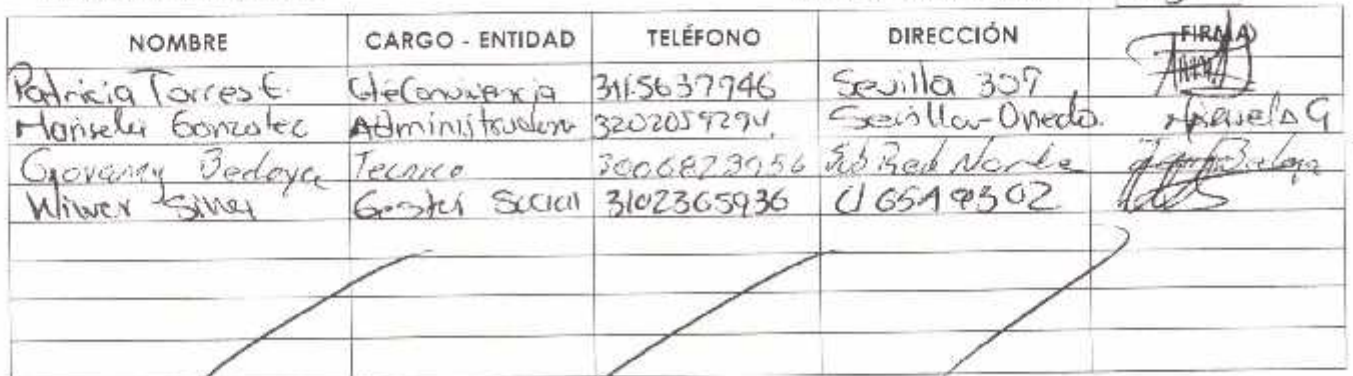 NOMBRE CARGO - ENTIDAD TELÉFONO DIRECCIÓN FIRMA
Patricia Torres E. Cte Convivencia 3115637946 Sevilla 307
Marisela Gonzalez Administradora 3202059294 Sevilla-Oviedo. Marisela G
Giovanny Bedoya Tecnico 3006823956 Sub Red Norte Bedoya
Wilmer Gestor Social 3102365936